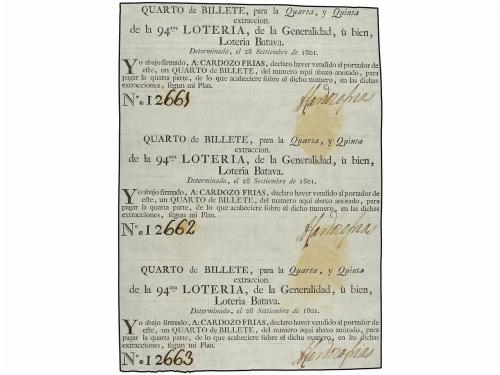 QUARTO de BILLETE, para la Quarta, y Quinta
extraccion.
de la 94ta LOTERIA, de la Generalidad, ù bien,
Loteria Batava.
Determinada, el 28 Settiembre de 1801.
Yo abajo firmado, A: CARDOZO FRIAS, declaro haver vendido al portador de
este, un QUARTO de BILLETE, del numero aqui abaxo anotado, para
pagar la quarta parte, de lo que acaheciere sobre el dicho numero, en las dichas
extracciones, segun mi Plan.
No. 12661
QUARTO de BILLETE, para la Quarta, y Quinta
extraccion.
de la 94ta LOTERIA, de la Generalidad, ù bien,
Loteria Batava.
Determinada, el 28 Settiembre de 1801.
Yo abajo firmado, A: CARDOZO FRIAS, declaro haver vendido al portador de
este, un QUARTO de BILLETE, del numero aqui abaxo anotado, para
pagar la quarta parte, de lo que acaheciere sobre el dicho numero, en las dichas
extracciones, segun mi Plan.
No. 12662
QUARTO de BILLETE, para la Quarta, y Quinta
extraccion.
de la 94ta LOTERIA, de la Generalidad, ù bien,
Loteria Batava.
Determinada, el 28 Settiembre de 1801.
Yo abajo firmado, A: CARDOZO FRIAS, declaro haver vendido al portador de
este, un QUARTO de BILLETE, del numero aqui abaxo anotado, para
pagar la quarta parte, de lo que acaheciere sobre el dicho numero, en las dichas
extracciones, segun mi Plan.
No. 12663